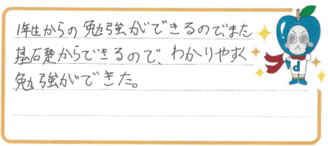 1年生からの勉強ができるので、また
基石楚からできるので、わかりやすく
勉強ができた。
d